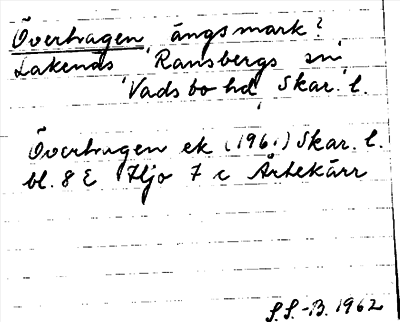 Överhagen, ängsmark?
Lakenäs, Ransbergs sn,
Vadsbo hd, Skar. l.
Överhagen ek (1961) Skar. l.
bl. 8 E Hjo 7 c Årtekärr
S.S.-B. 1962